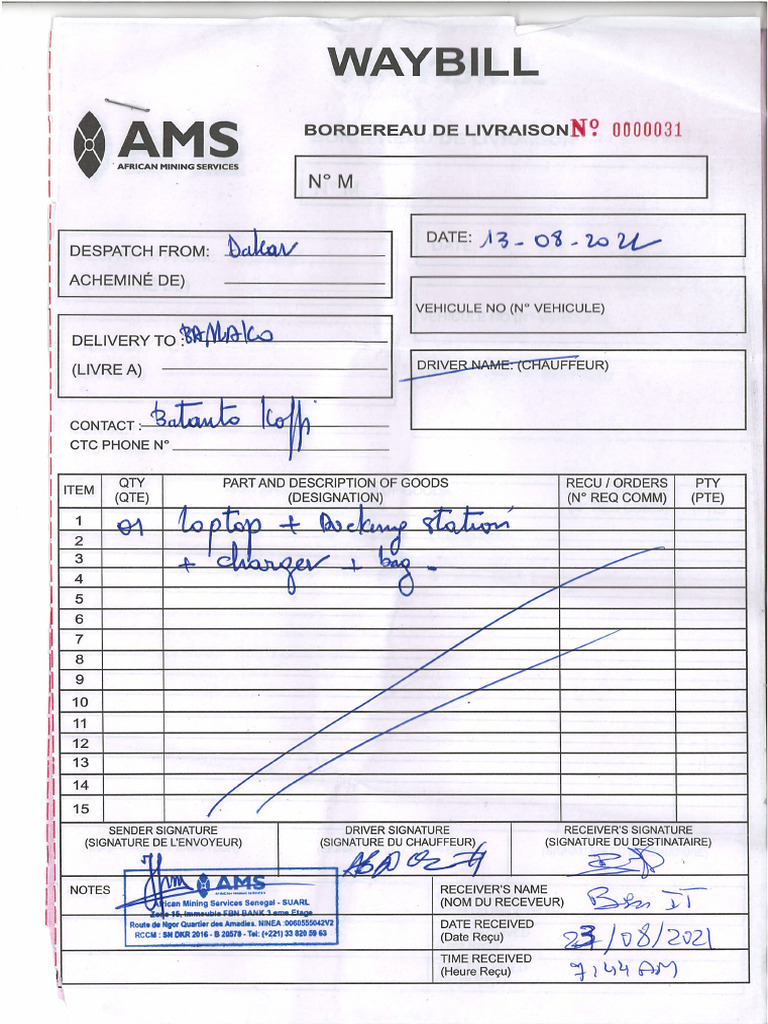 WAYBILL
AMS
AFRICAN MINING SERVICES
BORDEREAU DE LIVRAISON Nº 0000031
N° M
DESPATCH FROM: Dakar
ACHEMINÉ DE)
DATE: 13-08-2021
VEHICULE NO (N° VEHICULE)
DELIVERY TO : BAMAKO
(LIVRE A)
DRIVER NAME: (CHAUFFEUR)
CONTACT : Batanto Koffi
CTC PHONE N°
ITEM QTY (QTE) PART AND DESCRIPTION OF GOODS (DESIGNATION) RECU / ORDERS (N° REQ COMM) PTY (PTE)
1 01 laptop + Docking station
2
3 + charger + bag -
4
5
6
7
8
9
10
11
12
13
14
15
SENDER SIGNATURE (SIGNATURE DE L'ENVOYEUR)
DRIVER SIGNATURE (SIGNATURE DU CHAUFFEUR)
RECEIVER'S SIGNATURE (SIGNATURE DU DESTINATAIRE)
NOTES
AMS
AFRICAN MINING SERVICES
African Mining Services Senegal - SUARL
Zone 15, Immeuble FBN BANK 3 eme Etage
Route de Ngor Quartier des Amadies. NINEA :0060555042V2
RCCM : SN DKR 2016 - B 20578 - Tel: (+221) 33 820 59 63
RECEIVER'S NAME (NOM DU RECEVEUR) Ben IT
DATE RECEIVED (Date Reçu) 23/08/2021
TIME RECEIVED (Heure Reçu) 7:44 AM